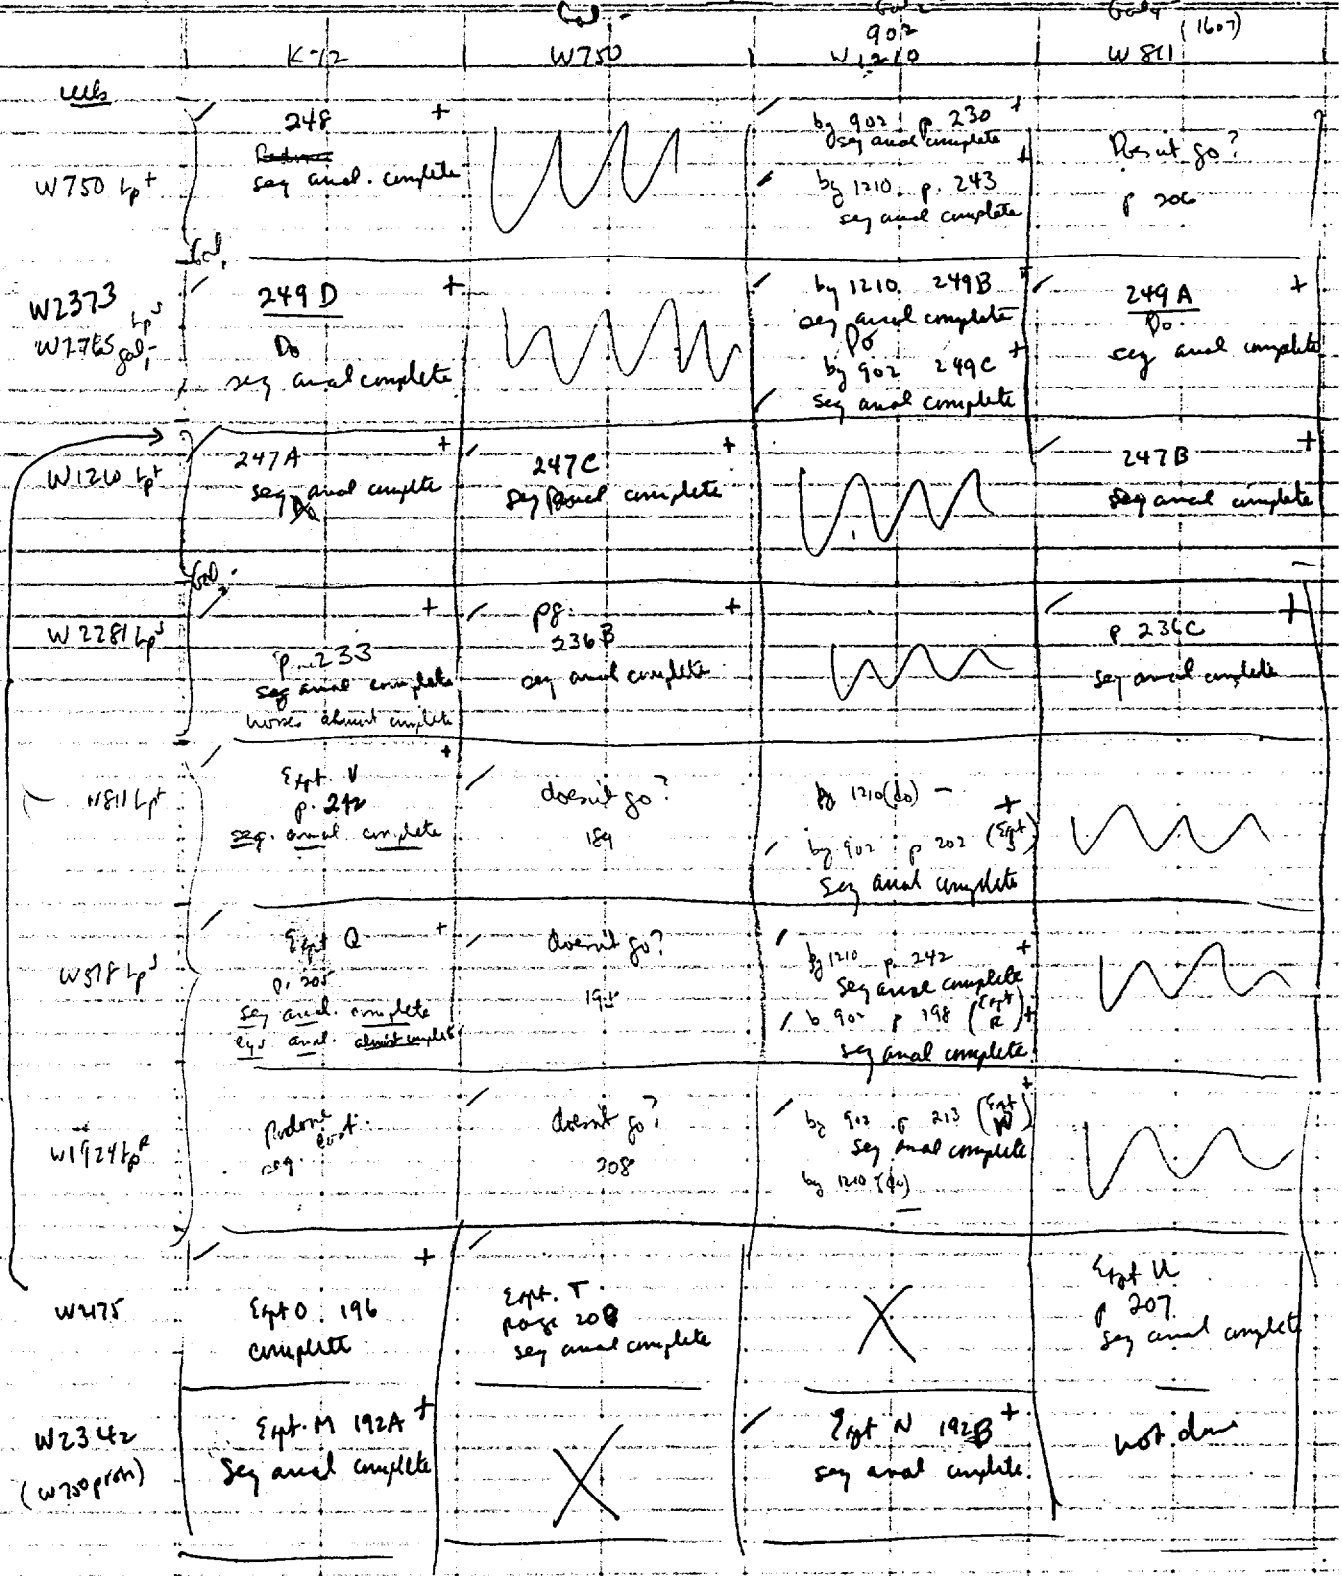 Gal1- Gal2 Gal4
902 (1607)
K72 W750 W1210 W811
W750 Lp+
248 +
seg anal. complete
by 902 p 230 +
seg anal complete
+
by 1210 p. 243
seg anal complete
Doesn't go?
p 206
Gal1
W2373 LpS
Gal1-
249 D +
Do
seg anal complete
by 1210 249B +
seg anal complete
Do
by 902 249C +
seg anal complete
249A +
Do
seg anal complete
W1210 Lp+
247A +
seg anal complete
247C +
seg anal complete
247B +
seg anal complete
Gal2-
W2281 LpS
+
p. 233
seg anal complete
almost complete
pg. +
236B
seg anal complete
+
p 236C
seg anal complete
W811 Lp+
+
Expt V
p. 242
seg. anal complete
doesn't go?
189
by 1210 (do) -
+
by 902 p 202 (Expt S)
seg anal complete
W518 LpS
Expt Q +
p. 205
seg anal. complete
anal. almost complete
doesn't go?
195
by 1210 p. 242 +
seg anal complete
b 902 p 198 (Expt R) +
seg anal complete
W1924 LpR
Redone
seg.
doesn't go?
208
by 902 p 213 (Expt W) +
seg anal complete
by 1210 (do)
-
W2175
+
Expt O. 196
complete
Expt. T
page 208
seg anal complete
X
Expt U
p 207
seg anal complete
W2342
(W750 prot)
Expt. M 192A +
Seg anal complete
X
Expt N 192B +
seg anal complete.
not done